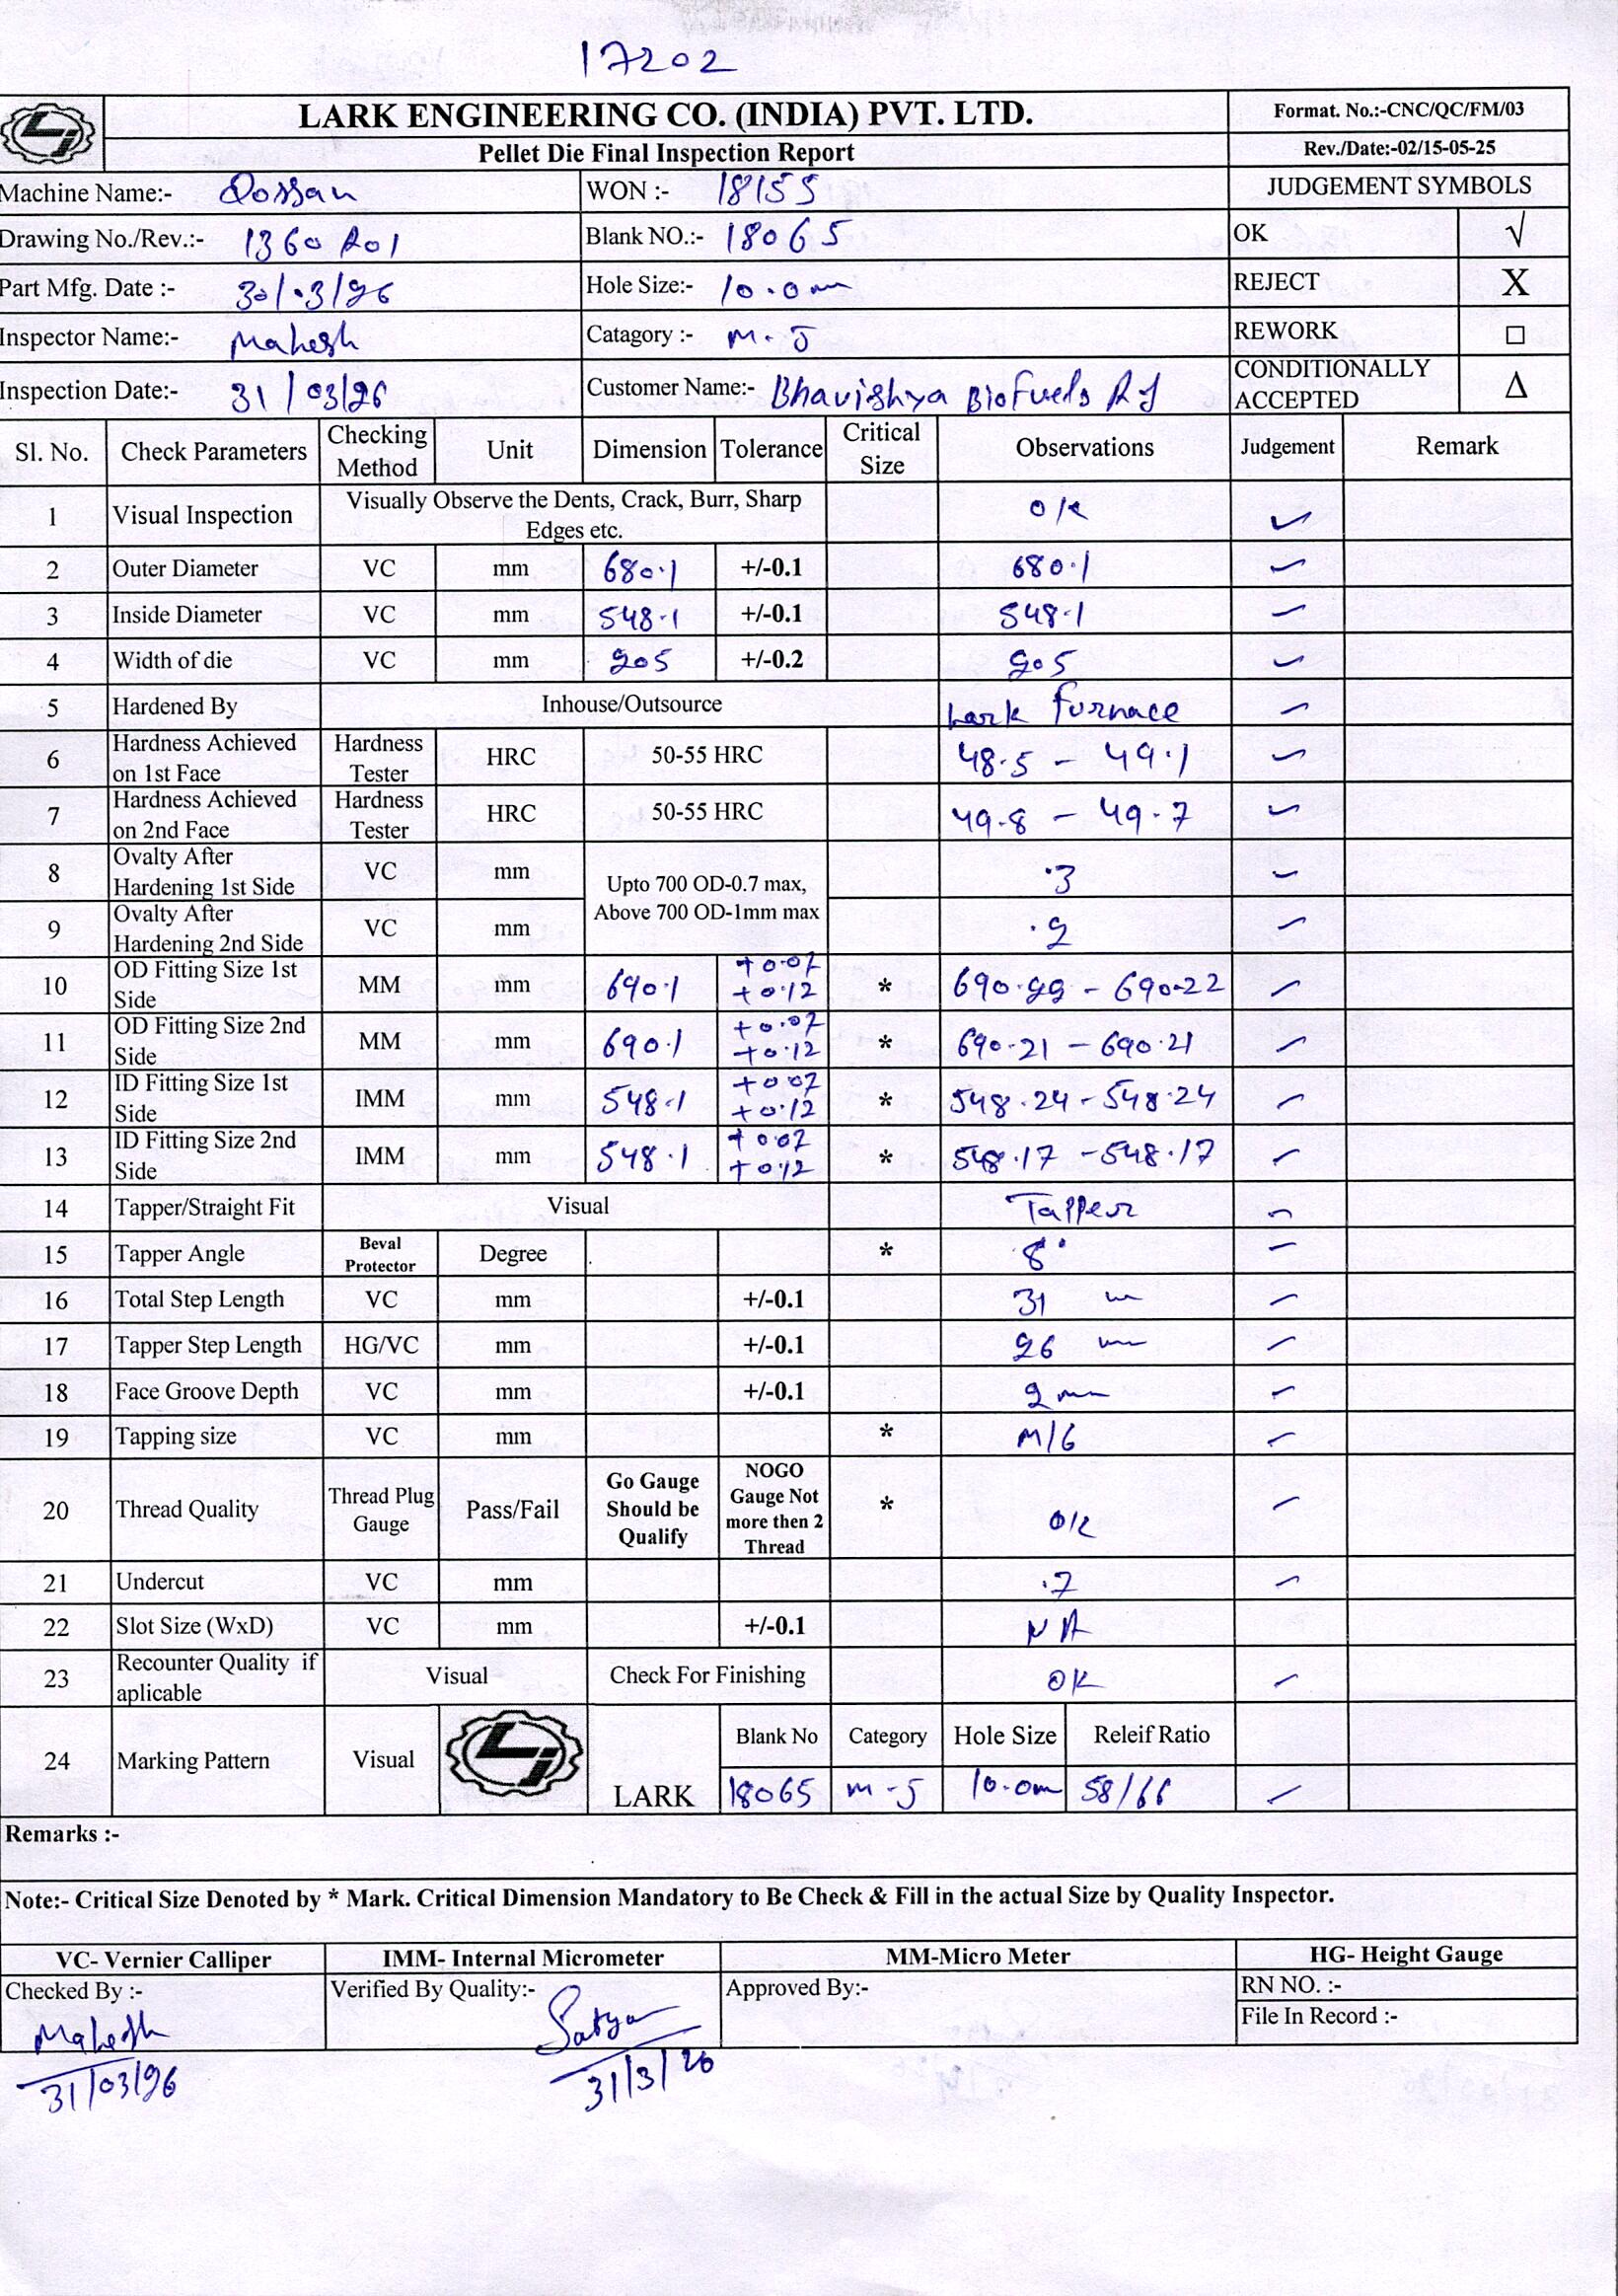 17202
LARK ENGINEERING CO. (INDIA) PVT. LTD.
Format. No.:-CNC/QC/FM/03
Pellet Die Final Inspection Report
Rev./Date:-02/15-05-25
Machine Name:- WON :- 18155 JUDGEMENT SYMBOLS
Drawing No./Rev.:- 1360 R01 Blank NO.:- 18065 OK √
Part Mfg. Date :- 30/03/26 Hole Size:- 10.0m REJECT X
Inspector Name:- Mahesh Catagory :- M-J REWORK □
Inspection Date:- 31/03/26 Customer Name:- Bhavishya BioFuels RJ CONDITIONALLY ACCEPTED Δ
Sl. No. Check Parameters Checking Method Unit Dimension Tolerance Critical Size Observations Judgement Remark
1 Visual Inspection Visually Observe the Dents, Crack, Burr, Sharp Edges etc. OK ✓
2 Outer Diameter VC mm 680.1 +/-0.1 680.1 ✓
3 Inside Diameter VC mm 548.1 +/-0.1 548.1 ✓
4 Width of die VC mm 205 +/-0.2 205 ✓
5 Hardened By Inhouse/Outsource Lark furnace ✓
6 Hardness Achieved on 1st Face Hardness Tester HRC 50-55 HRC 48.5 - 49.1 ✓
7 Hardness Achieved on 2nd Face Hardness Tester HRC 50-55 HRC 49.8 - 49.7 ✓
8 Ovalty After Hardening 1st Side VC mm Upto 700 OD-0.7 max, Above 700 OD-1mm max .3 ✓
9 Ovalty After Hardening 2nd Side VC mm .2 ✓
10 OD Fitting Size 1st Side MM mm 690.1 +0.07 +0.12 * 690.22 - 690.22 ✓
11 OD Fitting Size 2nd Side MM mm 690.1 +0.07 +0.12 * 690.21 - 690.21 ✓
12 ID Fitting Size 1st Side IMM mm 548.1 +0.07 +0.12 * 548.24 - 548.24 ✓
13 ID Fitting Size 2nd Side IMM mm 548.1 +0.07 +0.12 * 548.17 - 548.17 ✓
14 Tapper/Straight Fit Visual Tapper ✓
15 Tapper Angle Beval Protector Degree * 8° ✓
16 Total Step Length VC mm +/-0.1 31 m ✓
17 Tapper Step Length HG/VC mm +/-0.1 26 mm ✓
18 Face Groove Depth VC mm +/-0.1 2 mm ✓
19 Tapping size VC mm * M16 ✓
20 Thread Quality Thread Plug Gauge Pass/Fail Go Gauge Should be Qualify NOGO Gauge Not more then 2 Thread * OK ✓
21 Undercut VC mm .7 ✓
22 Slot Size (WxD) VC mm +/-0.1 NA
23 Recounter Quality if aplicable Visual Check For Finishing OK ✓
24 Marking Pattern Visual LARK Blank No Category Hole Size Releif Ratio
18065 M-J 10.0m 58/66 ✓
Remarks :-
Note:- Critical Size Denoted by * Mark. Critical Dimension Mandatory to Be Check & Fill in the actual Size by Quality Inspector.
VC- Vernier Calliper IMM- Internal Micrometer MM-Micro Meter HG- Height Gauge
Checked By :- Verified By Quality:- Approved By:- RN NO. :-
File In Record :-
Mahesh Satya
31/03/26 31/3/26